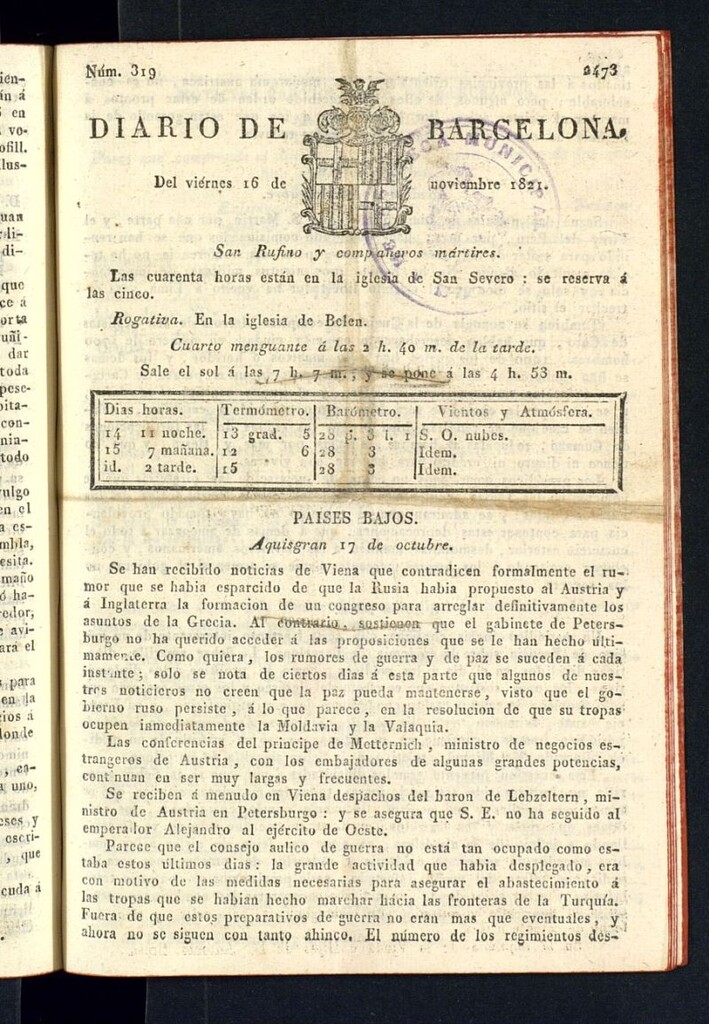 Núm. 319 2473
DIARIO DE BARCELONA.
Del viérnes 16 de noviembre 1821.
San Rufino y compañeros mártires.
Las cuarenta horas están en la iglesia de San Severo : se reserva á
las cinco.
Rogativa. En la iglesia de Belen.
Cuarto menguante á las 2 h. 40 m. de la tarde.
Sale el sol á las 7 h. 7 m., y se pone á las 4 h. 53 m.
Dias horas. Termómetro. Barómetro. Vientos y Atmósfera.
14 11 noche. 13 grad. 5 28 p. 3 l. 1 S. O. nubes.
15 7 mañana. 12 6 28 3 Idem.
id. 2 tarde. 15 28 3 Idem.
PAISES BAJOS.
Aquisgran 17 de octubre.
Se han recibido noticias de Viena que contradicen formalmente el ru-
mor que se habia esparcido de que la Rusia habia propuesto al Austria y
á Inglaterra la formacion de un congreso para arreglar definitivamente los
asuntos de la Grecia. Al contrario, sostienen que el gabinete de Peters-
burgo no ha querido acceder á las proposiciones que se le han hecho últi-
mamente. Como quiera, los rumores de guerra y de paz se suceden á cada
instante; solo se nota de ciertos dias á esta parte que algunos de nues-
tros noticieros no creen que la paz pueda mantenerse, visto que el go-
bierno ruso persiste, á lo que parece, en la resolucion de que su tropas
ocupen inmediatamente la Moldavia y la Valaquia.
Las conferencias del principe de Metternich, ministro de negocios es-
trangeros de Austria, con los embajadores de algunas grandes potencias,
continuan en ser muy largas y frecuentes.
Se reciben á menudo en Viena despachos del baron de Lebzeltern, mi-
nistro de Austria en Petersburgo : y se asegura que S. E. no ha seguido al
emperador Alejandro al ejército de Oeste.
Parece que el consejo aulico de guerra no está tan ocupado como es-
taba estos últimos dias : la grande actividad que habia desplegado, era
con motivo de las medidas necesarias para asegurar el abastecimiento á
las tropas que se habian hecho marchar hácia las fronteras de la Turquía.
Fuera de que estos preparativos de guerra no eran mas que eventuales, y
ahora no se siguen con tanto ahinco. El número de los regimientos des-